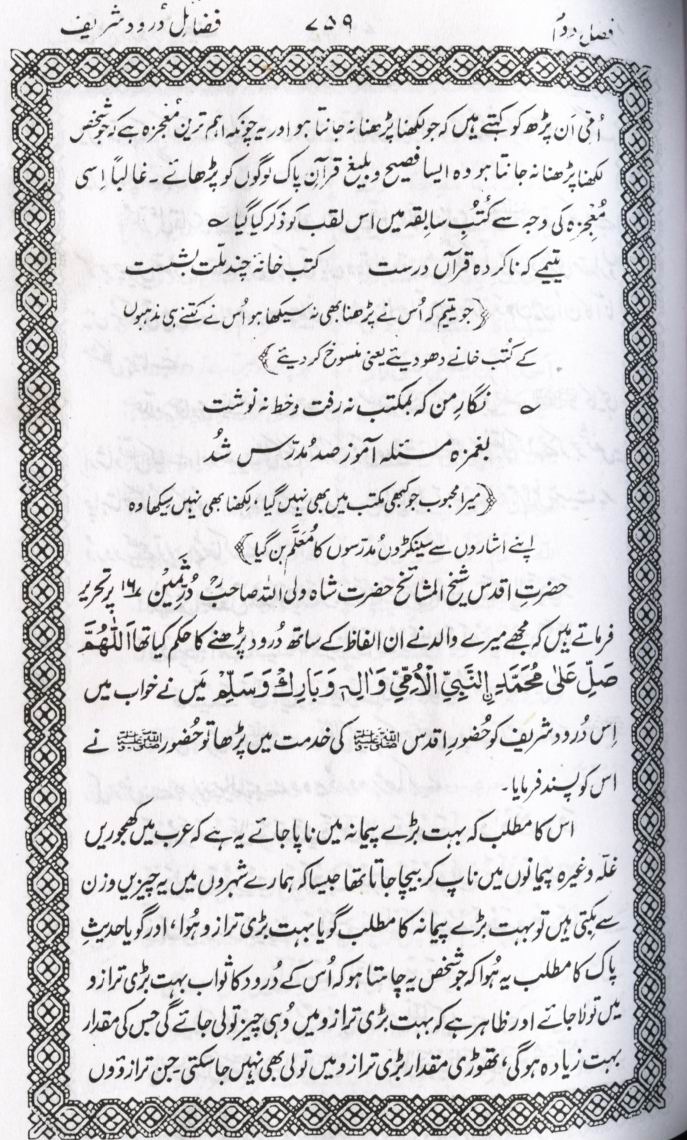 فصل دوم ۷۵۹ فضائل دُرود شریف
اُمّی اَن پڑھ کو کہتے ہیں کہ جو لکھنا پڑھنا نہ جانتا ہو اور یہ چونکہ اہم ترین مُعجزہ ہے کہ جو شخص
لکھنا پڑھنا نہ جانتا ہو وہ ایسا فصیح و بلیغ قرآنِ پاک لوگوں کو پڑھائے۔ غالباً اِسی
مُعجزہ کی وجہ سے کُتُبِ سابقہ میں اس لقب کو ذکر کیا گیا ؎
یتیمے کہ ناکردہ قرآں درست کتب خانۂ چند ملّت بشست
﴿جو یتیم کہ اُس نے پڑھنا بھی نہ سیکھا ہو اُس نے کتنے ہی مذہبوں
کے کتب خانے دھو دیئے یعنی منسوخ کر دیئے﴾
؎ نگارِ من کہ بمکتب نہ رفت و خط نہ نوشت
بغمزہ مسئلہ آموز صد مُدرّس شُد
﴿میرا محبوب جو کبھی مکتب میں بھی نہیں گیا، لکھنا بھی نہیں سیکھا وہ
اپنے اشاروں سے سینکڑوں مُدرّسوں کا مُعلّم بن گیا﴾
حضرتِ اقدس شیخُ المشائخ حضرت شاہ ولی اللہ صاحبؒ حِرزِ ثمین ۱۶ پر تحریر
فرماتے ہیں کہ مجھے میرے والد نے ان الفاظ کے ساتھ دُرود پڑھنے کا حکم کیا تھا اَللّٰهُمَّ
صَلِّ عَلٰی مُحَمَّدِ اِلنَّبِيِّ الْاُمِّيِّ وَاٰلِهٖ وَبَارِكْ وَسَلِّمْ مَیں نے خواب میں
اِس دُرود شریف کو حُضورِ اقدس ﷺ کی خدمت میں پڑھا تو حُضور ﷺ نے
اس کو پسند فرمایا۔
اس کا مطلب کہ بہت بڑے پیمانہ میں ناپا جائے یہ ہے کہ عرب میں کھجوریں
غلّہ وغیرہ پیمانوں میں ناپ کر بیچا جاتا تھا جیسا کہ ہمارے شہروں میں یہ چیزیں وزن
سے بکتی ہیں تو بہت بڑے پیمانہ کا مطلب گویا بہت بڑی ترازو ہُوا، اور گویا حدیثِ
پاک کا مطلب یہ ہُوا کہ جو شخص یہ چاہتا ہو کہ اُس کے دُرود کا ثواب بہت بڑی ترازو
میں تولا جائے اور ظاہر ہے کہ بہت بڑی ترازو میں وُہی چیز تولی جائے گی جس کی مقدار
بہت زیادہ ہو گی، تھوڑی مقدار بڑی ترازو میں تولی بھی نہیں جا سکتی۔ جن ترازوؤں